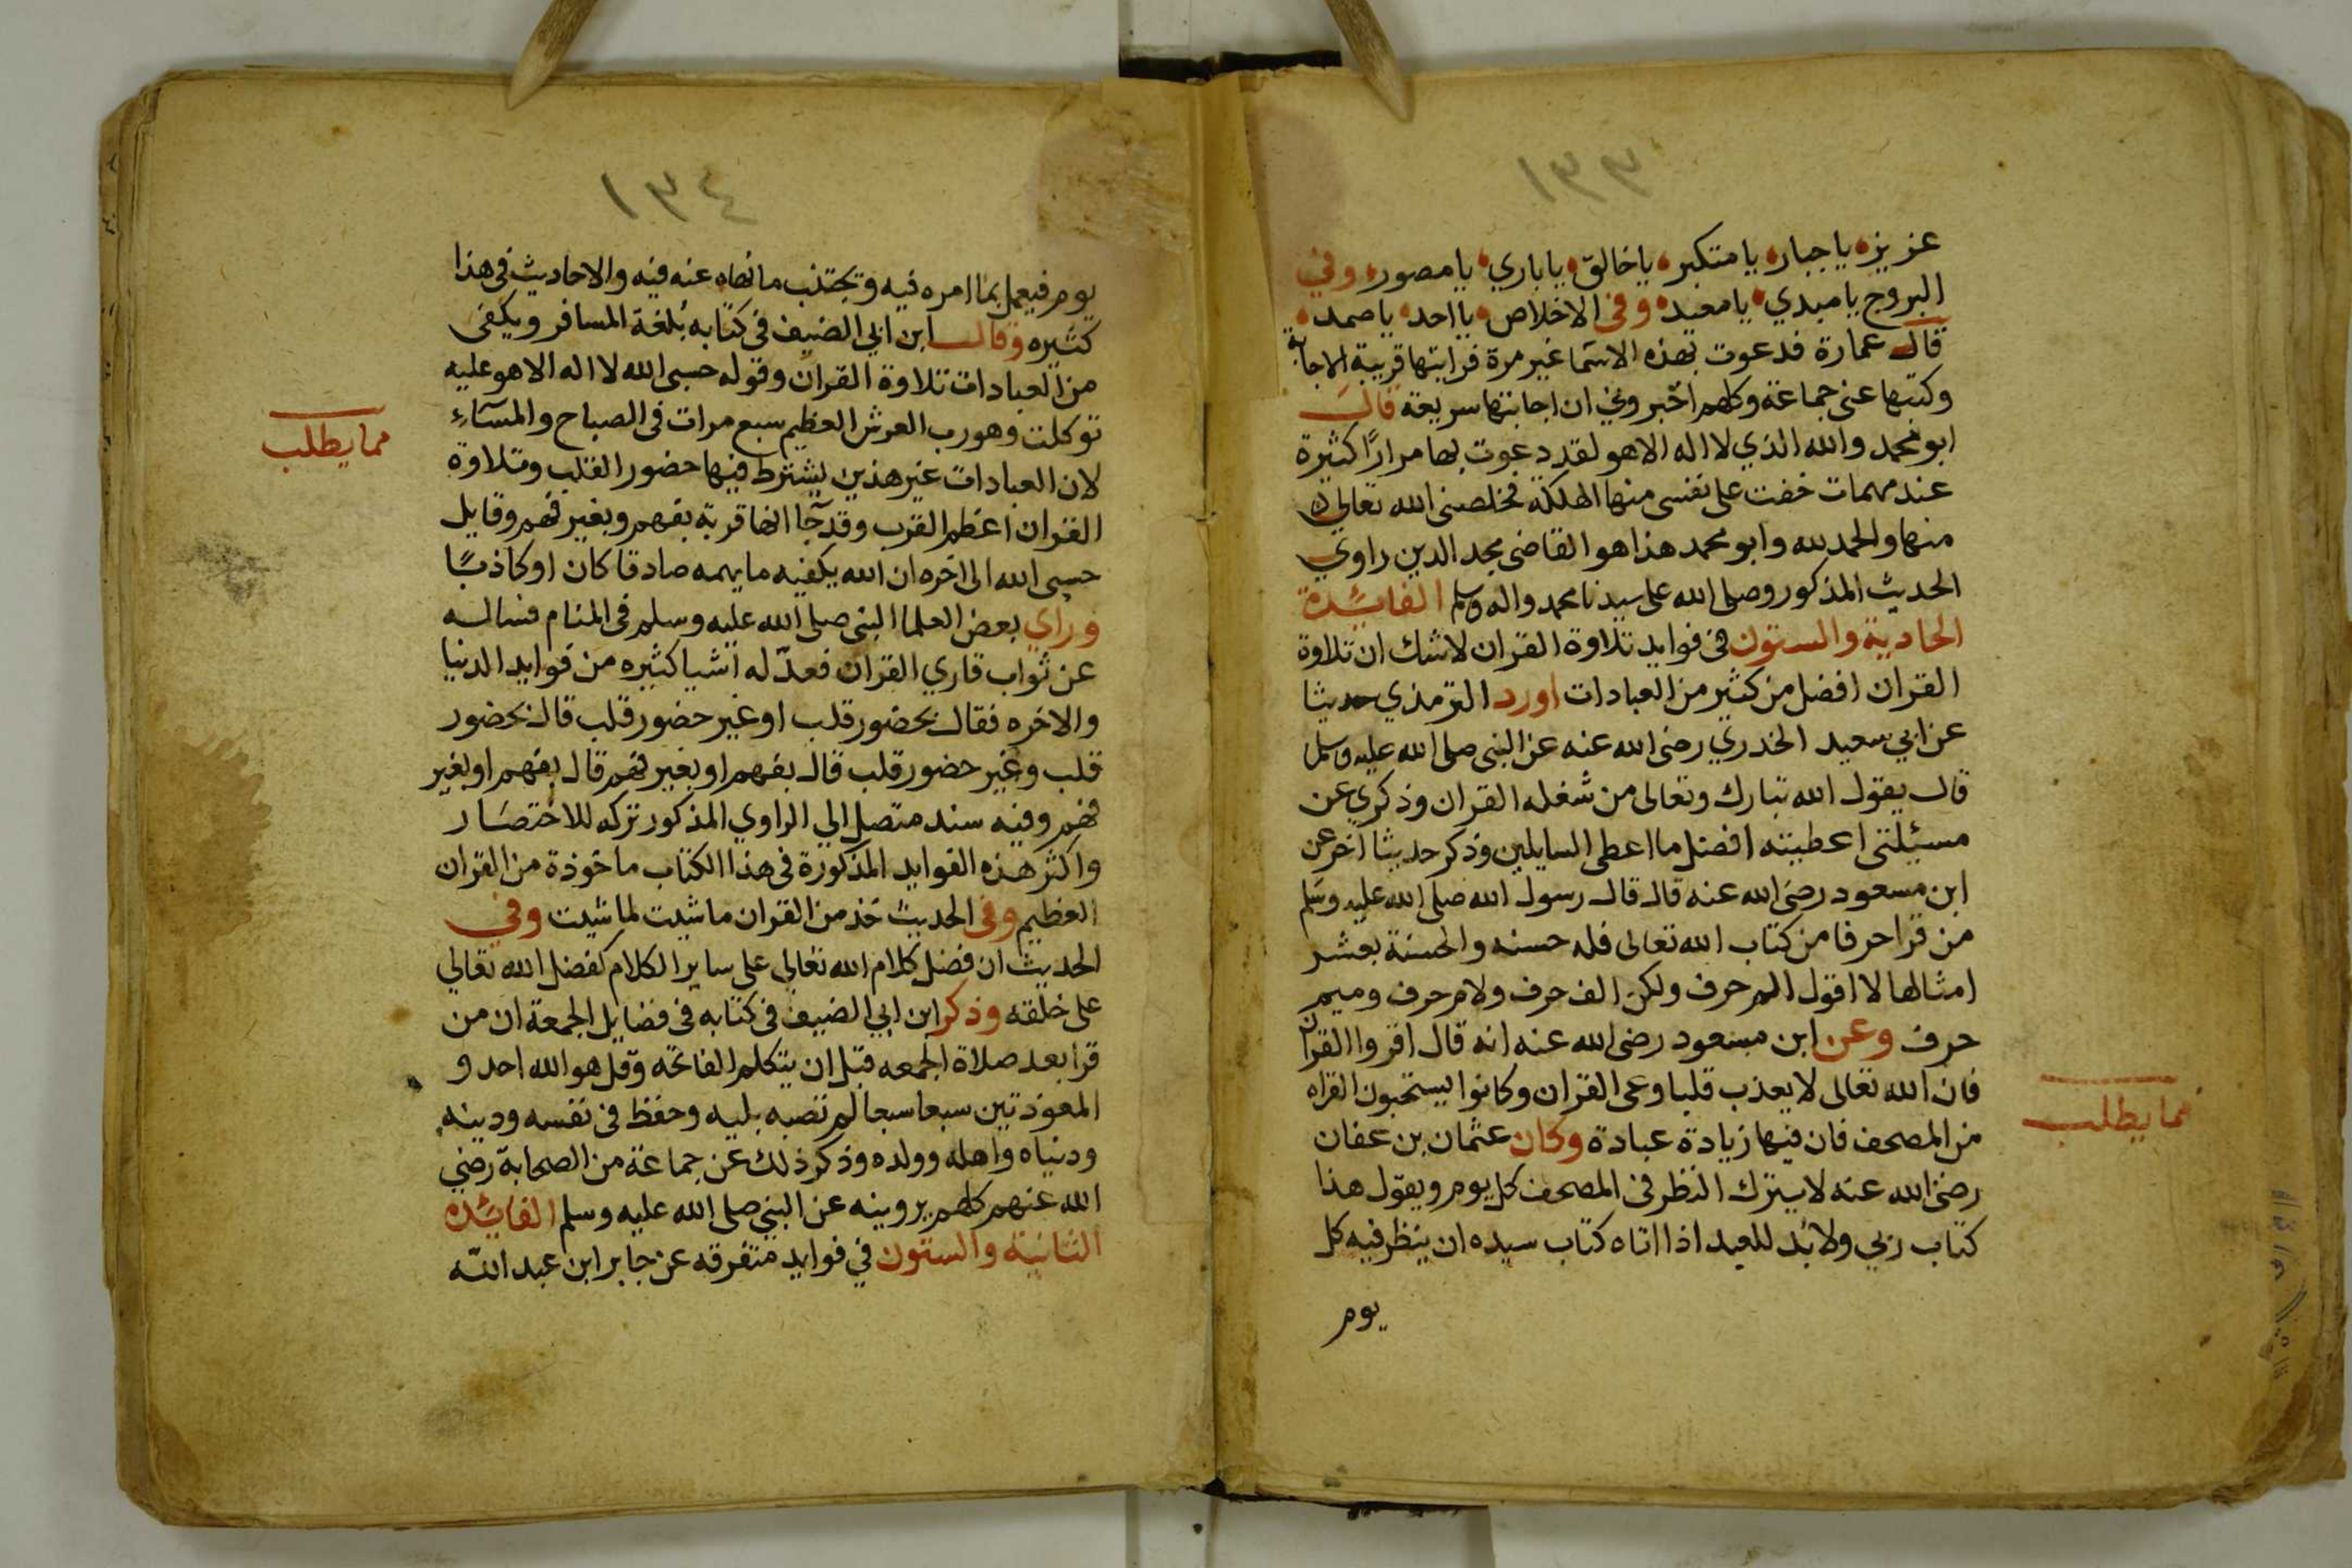 ١٣٣
عزيز يا جبار يا متكبر يا خالق يا باري يا مصور وفي
البروج يا مبدي يا معيد وفى الاخلاص يا احد يا صمد
قال عمارة فدعوت بهذه الاسما غير مرة فرايتها قريبة الاجابة
وكتبها عنى جماعة وكلهم اخبروني ان اجابتها سريعة قال
ابو محمد والله الذي لا اله الا هو لقد دعوت بها مرارًا كثيرة
عند مهمات خفت على نفسى منها الهلكة فخلصنى الله تعالى
منها والحمد لله وابو محمد هذا هو القاضى مجد الدين راوي
الحديث المذكور وصلى الله على سيدنا محمد واله وسلم الفائدة
الحادية والستون فى فوايد تلاوة القران لا شك ان تلاوة
القران افضل من كثير من العبادات اورد الترمذي حديثا
عن ابي سعيد الخدري رضى الله عنه عن النبى صلى الله عليه وسلم
قال يقول الله تبارك وتعالى من شغله القران وذكري عن
مسئلتى اعطيته افضل ما اعطى السايلين وذكر حديثا اخر عن
ابن مسعود رضى الله عنه قال قال رسول الله صلى الله عليه وسلم
من قرا حرفا من كتاب الله تعالى فله حسنه والحسنة بعشر
امثالها لا اقول الم حرف ولكن الف حرف ولام حرف وميم
حرف وعن ابن مسعود رضى الله عنه انه قال اقروا القران
فان الله تعالى لا يعذب قلبا وعى القران وكانوا يستحبون القراه
من المصحف فان فيها زيادة عبادة وكان عثمان بن عفان
رضى الله عنه لا يترك النظر فى المصحف كل يوم ويقول هذا
كتاب ربي ولابد للعبد اذا اتاه كتاب سيده ان ينظر فيه كل
يوم
مما يطلب
١٣٤
يوم فيعمل بما امره فيه ويجتنب ما نهاه عنه فيه والاحاديث فى هذا
كثيره وقال ابن ابي الضيف فى كتابه بُلغة المسافر ويكفى
من العبادات تلاوة القران وقوله حسبى الله لا اله الا هو عليه
توكلت وهو رب العرش العظيم سبع مرات فى الصباح والمسآء
لان العبادات غير هذين يشترط فيها حضور القلب وتلاوة
القران اعظم القرب وقد جآ انها قربة بفهم وبغير فهم وقايل
حسبى الله الى اخره ان الله يكفيه ما يهمه صادقا كان او كاذبًا
وراي بعض العلما النبى صلى الله عليه وسلم فى المنام فساله
عن ثواب قاري القران فعدّ له اشيا كثيره من فوايد الدنيا
والاخره فقال بحضور قلب او غير حضور قلب قال بحضور
قلب وغير حضور قلب قال بفهم او بغير فهم قال بفهم او بغير
فهم وفيه سند متصل الي الراوي المذكور تركه للاختصار
واكثر هذه الفوايد المذكورة فى هذا الكتاب ماخوذة من القران
العظيم وفى الحديث خذ من القران ما شيت لما شيت وفي
الحديث ان فضل كلام الله تعالى على ساير الكلام كفضل الله تعالى
على خلقه وذكر ابن ابي الضيف فى كتابه فى فضايل الجمعة ان من
قرا بعد صلاة الجمعه قبل ان يتكلم الفاتحه وقل هو الله احد و
المعوذتين سبعا سبعا لم تصبه بليه وحفظ فى نفسه ودينه
ودنياه واهله وولده وذكر ذلك عن جماعة من الصحابة رضي
الله عنهم كلهم يروينه عن النبى صلى الله عليه وسلم الفائده
الثانية والستون في فوايد متفرقه عن جابر ابن عبد الله
مما يطلب